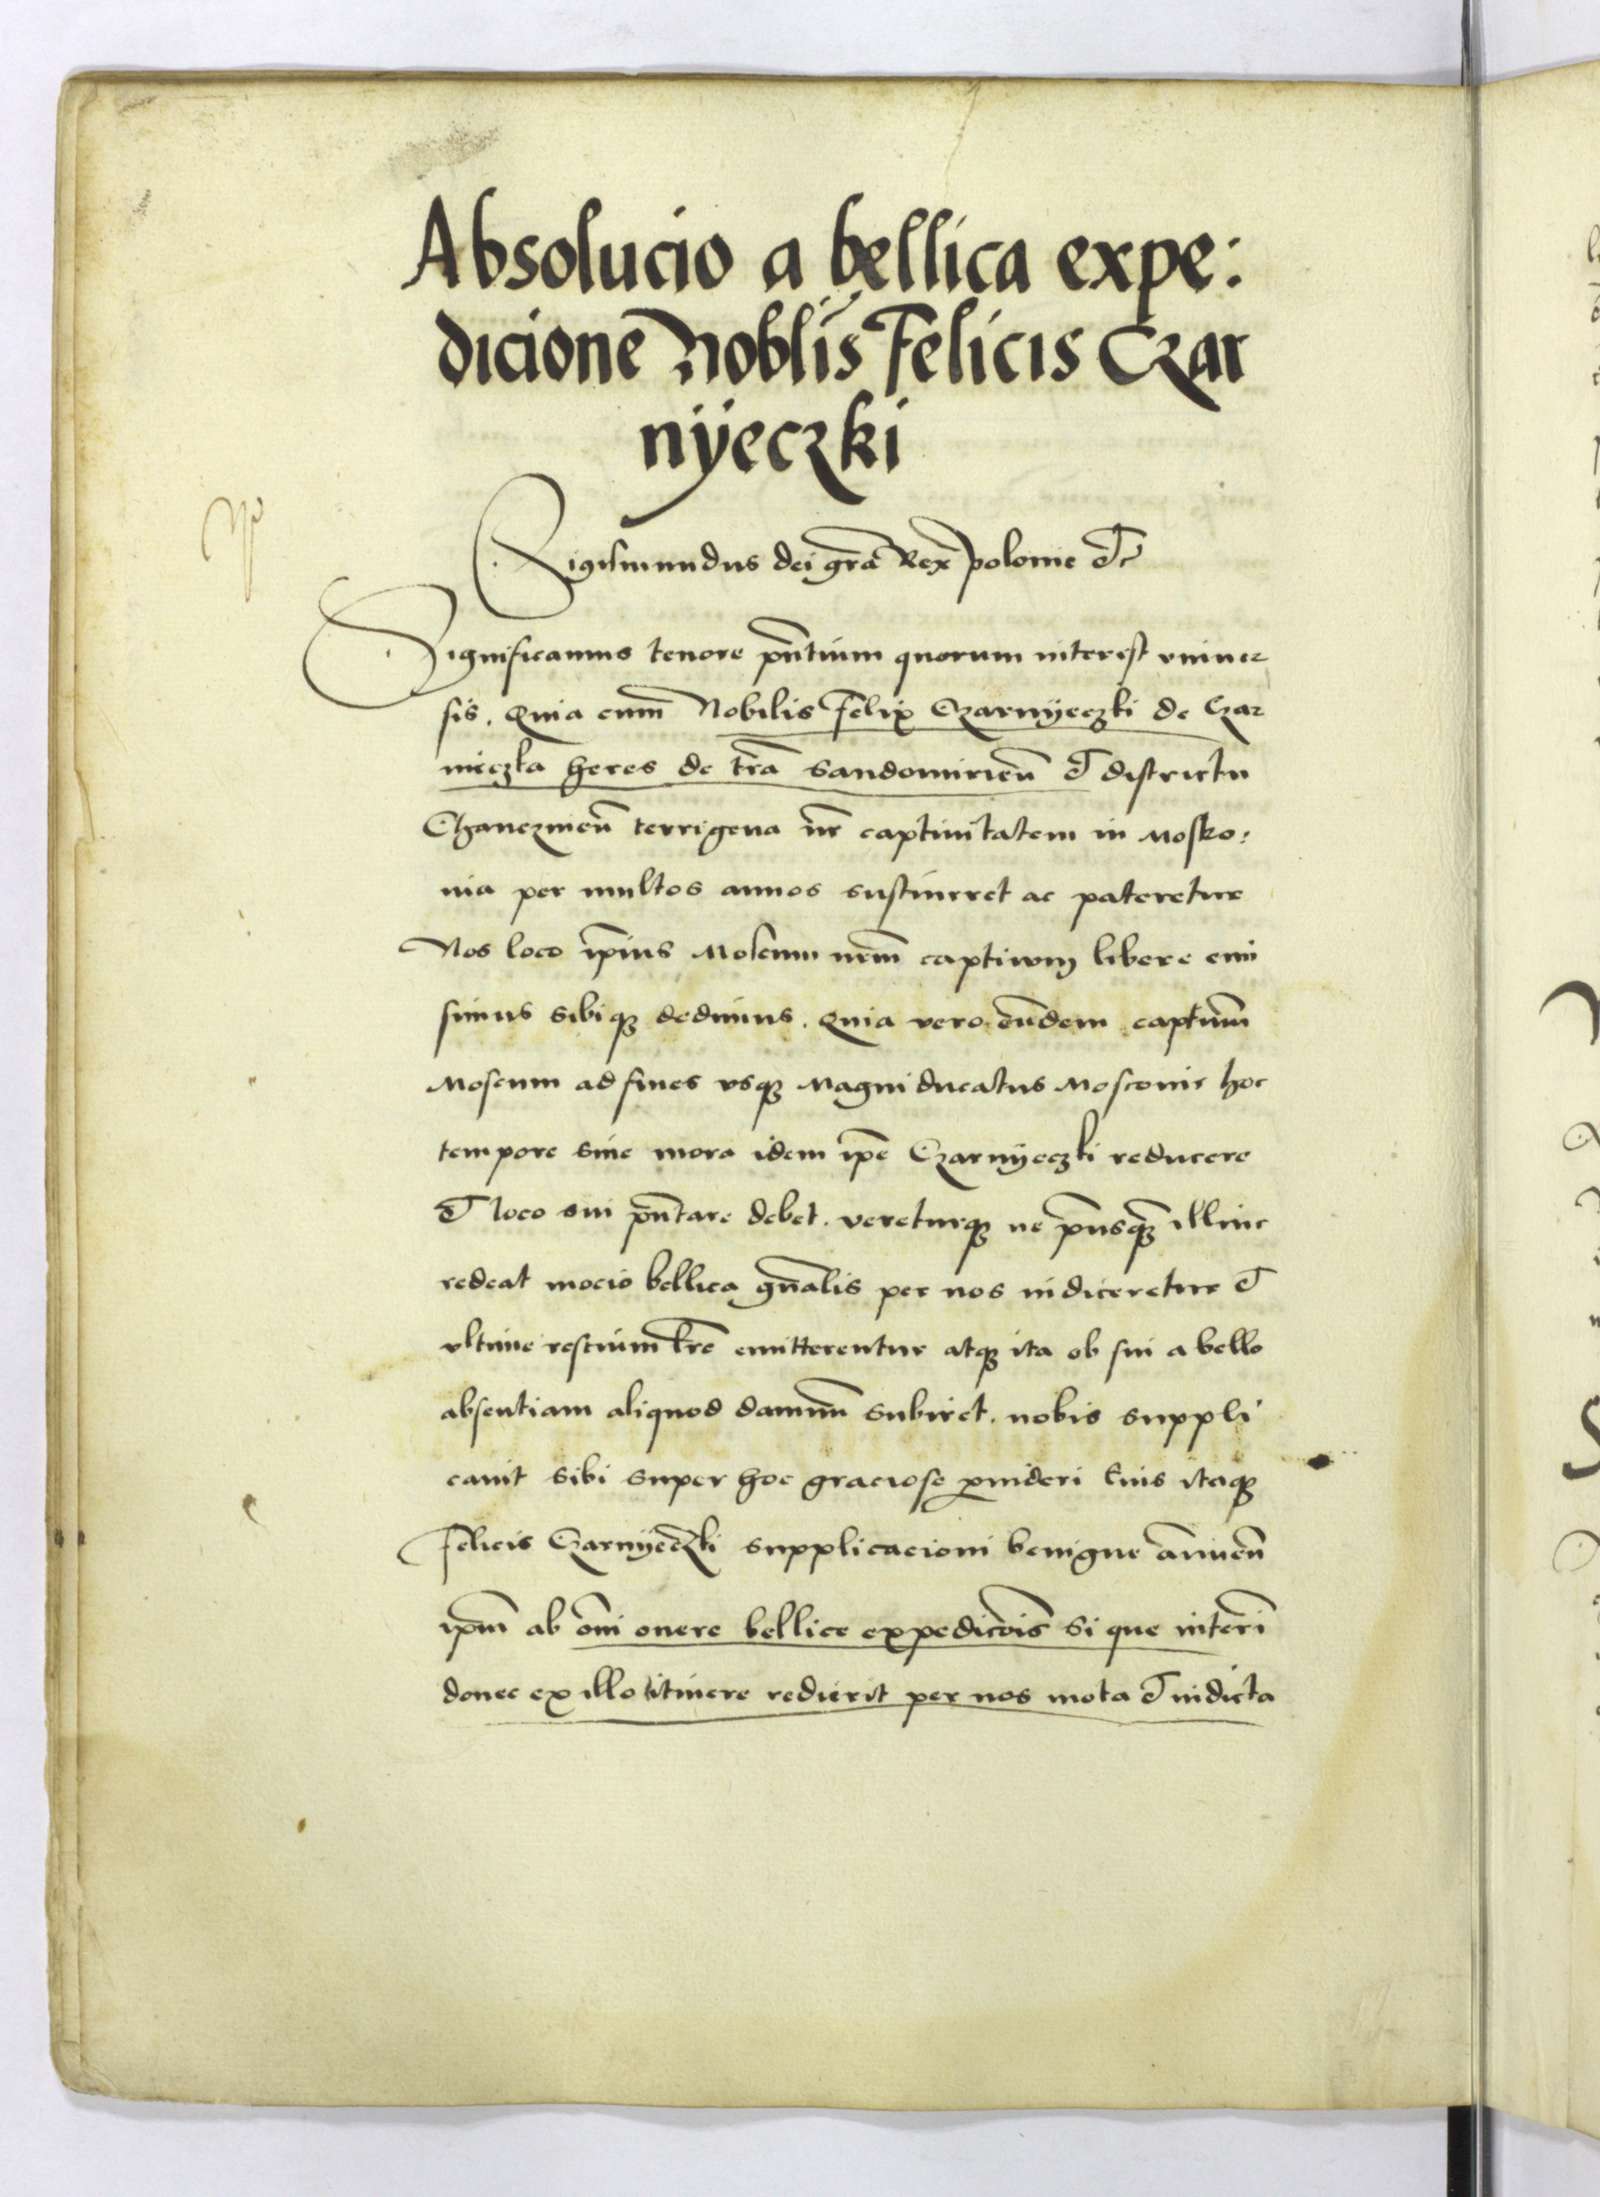 Absolucio a bellica expe:
dicione Noblis Felicis Czar
nÿeczki
Sigismundus dei gra Rex polonie &c
Significamus tenore pntium quorum interest vniuer
sis. Quia cum Nobilis Felix Czarnÿeczki de Czar
nieczka heres de tra Sandomirien & districtu
Chanczinen terrigena nr captiuitatem in Mosko:
uia per multos annos sustineret ac pateretur
Nos loco ipius Moscum nrm captiuum libere emi
simus sibiq dedimus. Quia vero eundem captiuum
Moscum ad fines vsq Magni ducatus Moscouie hoc
tempore sine mora idem ipe Czarnÿeczki reducere
& loco sui pntare debet. vereturq ne priusq illinc
redeat mocio bellica gnalis per nos indiceretur &
vltime restium lre emitterentur atq ita ob sui a bello
absentiam aliquod damnum subiret. nobis suppli
cauit sibi super hoc graciose prouideri Euis itaq
Felicis Czarnÿeczki supplicacioni benigne annuen
ipm ab omi onere bellice expedicois si que interi
donec ex illo itinere redierit per nos mota & indicta